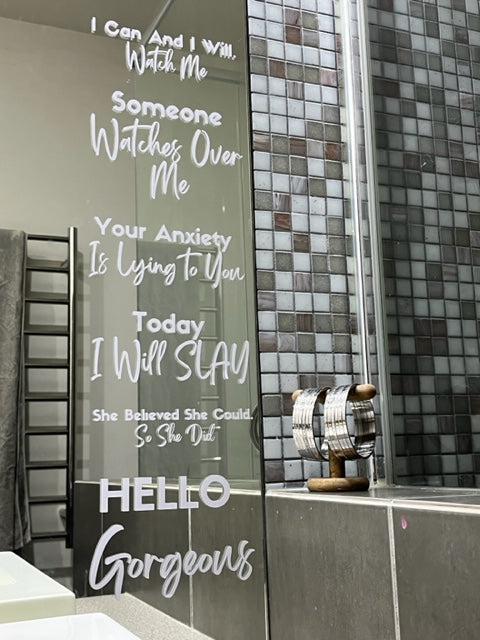 I Can And I Will.
Watch Me
Someone
Watches Over
Me
Your Anxiety
Is Lying to You
Today
I Will SLAY
She Believed She Could.
So She Did
HELLO
Gorgeous